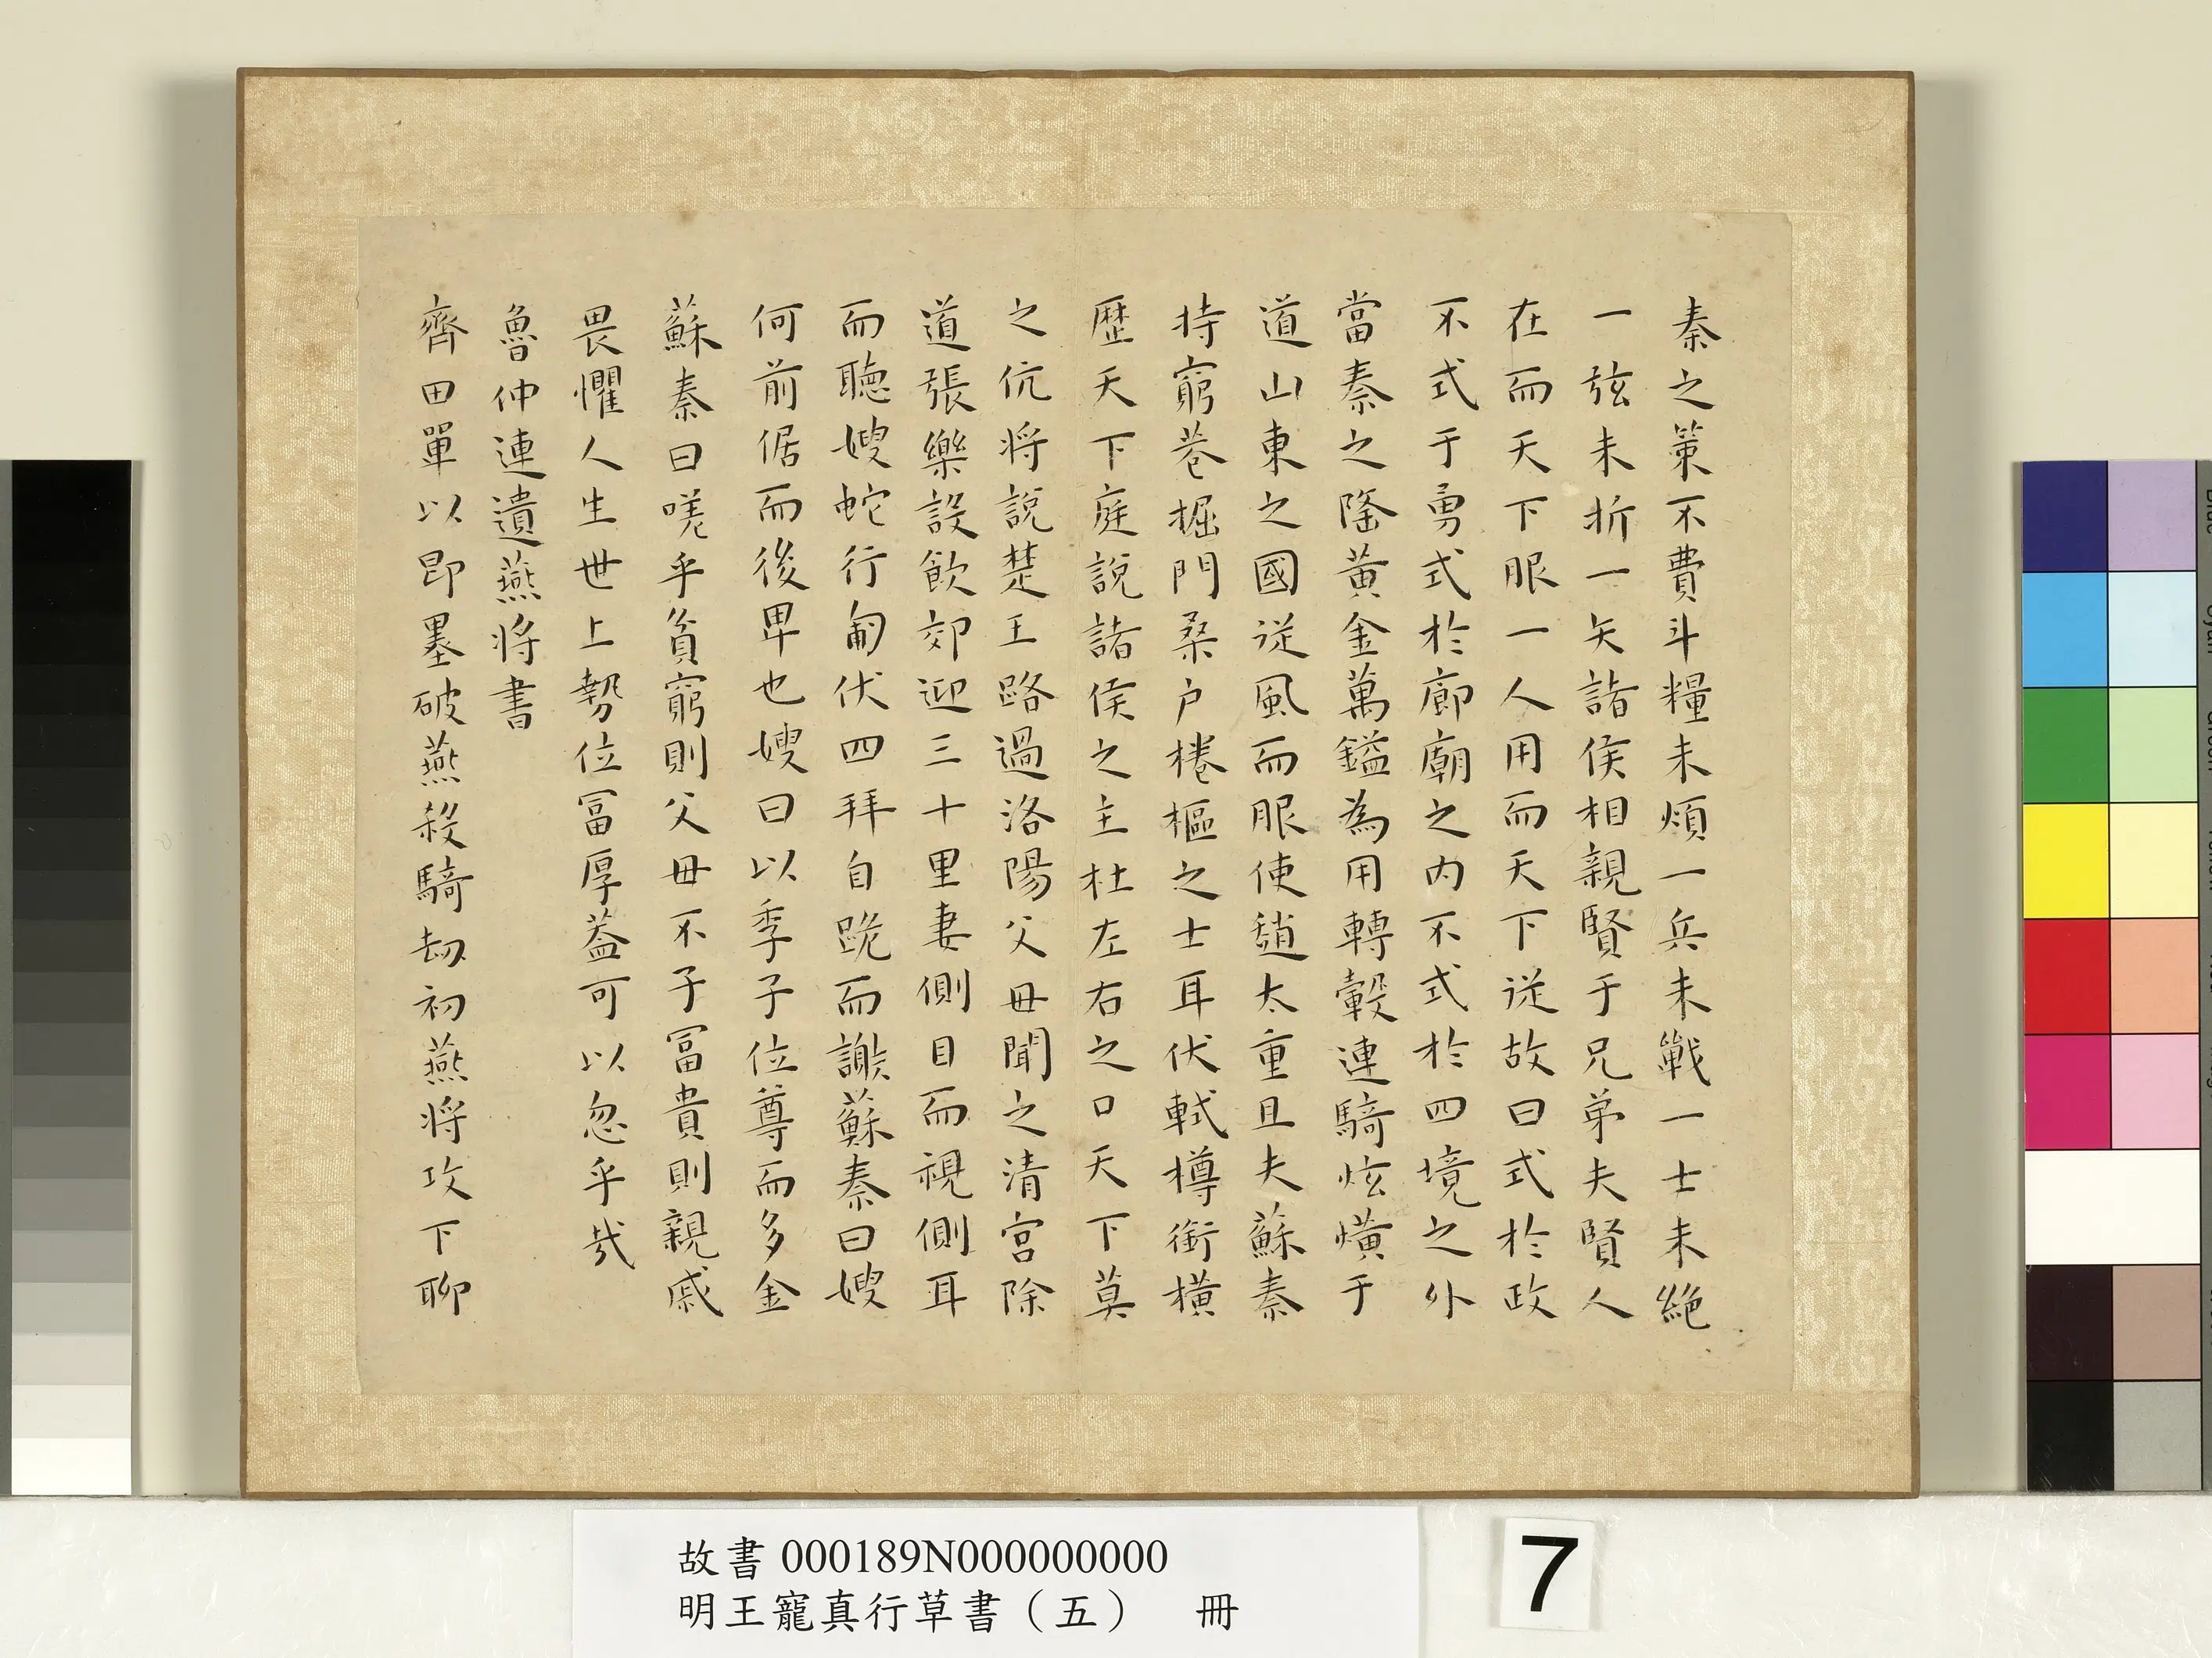 秦之策不費斗糧未煩一兵未戰一士未絕
一弦未折一矢諸侯相親賢于兄弟夫賢人
在而天下服一人用而天下從故曰式於政
不式于勇式於廊廟之內不式於四境之外
當秦之隆黃金萬鎰為用轉轂連騎炫熿于
道山東之國從風而服使趙太重且夫蘇秦
特窮巷掘門桑户棬樞之士耳伏軾樽銜橫
歷天下庭說諸侯之主杜左右之口天下莫
之伉将說楚王路過洛陽父母聞之清宫除
道張樂設飲郊迎三十里妻側目而視側耳
而聽嫂蛇行匍伏四拜自跪而謝蘇秦曰嫂
何前倨而後卑也嫂曰以季子位尊而多金
蘇秦曰嘆乎貧窮則父母不子冨貴則親戚
畏懼人生世上勢位冨厚葢可以忽乎哉
魯仲連遺燕将書
齊田單以即墨破燕殺騎劫初燕将攻下聊
故書000189N000000000
明王寵真行草書（五） 冊
7